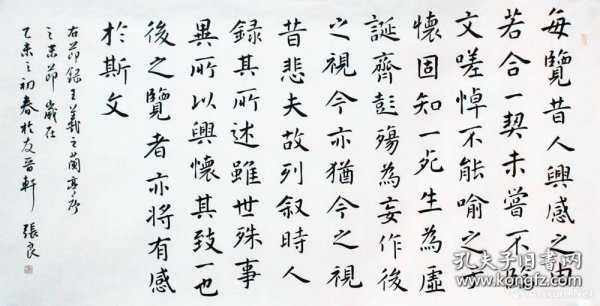 每覽昔人興感之由
若合一契未嘗不臨
文嗟悼不能喻之於
懷固知一死生為虛
誕齊彭殤為妄作後
之視今亦猶今之視
昔悲夫故列叙時人
録其所述雖世殊事
異所以興懷其致一也
後之覽者亦將有感
於斯文
右節録王羲之蘭亭序
之末節 歲在
乙未之初春於友晋軒 張良
孔夫子旧书网
kongfz.com
Artron.Net